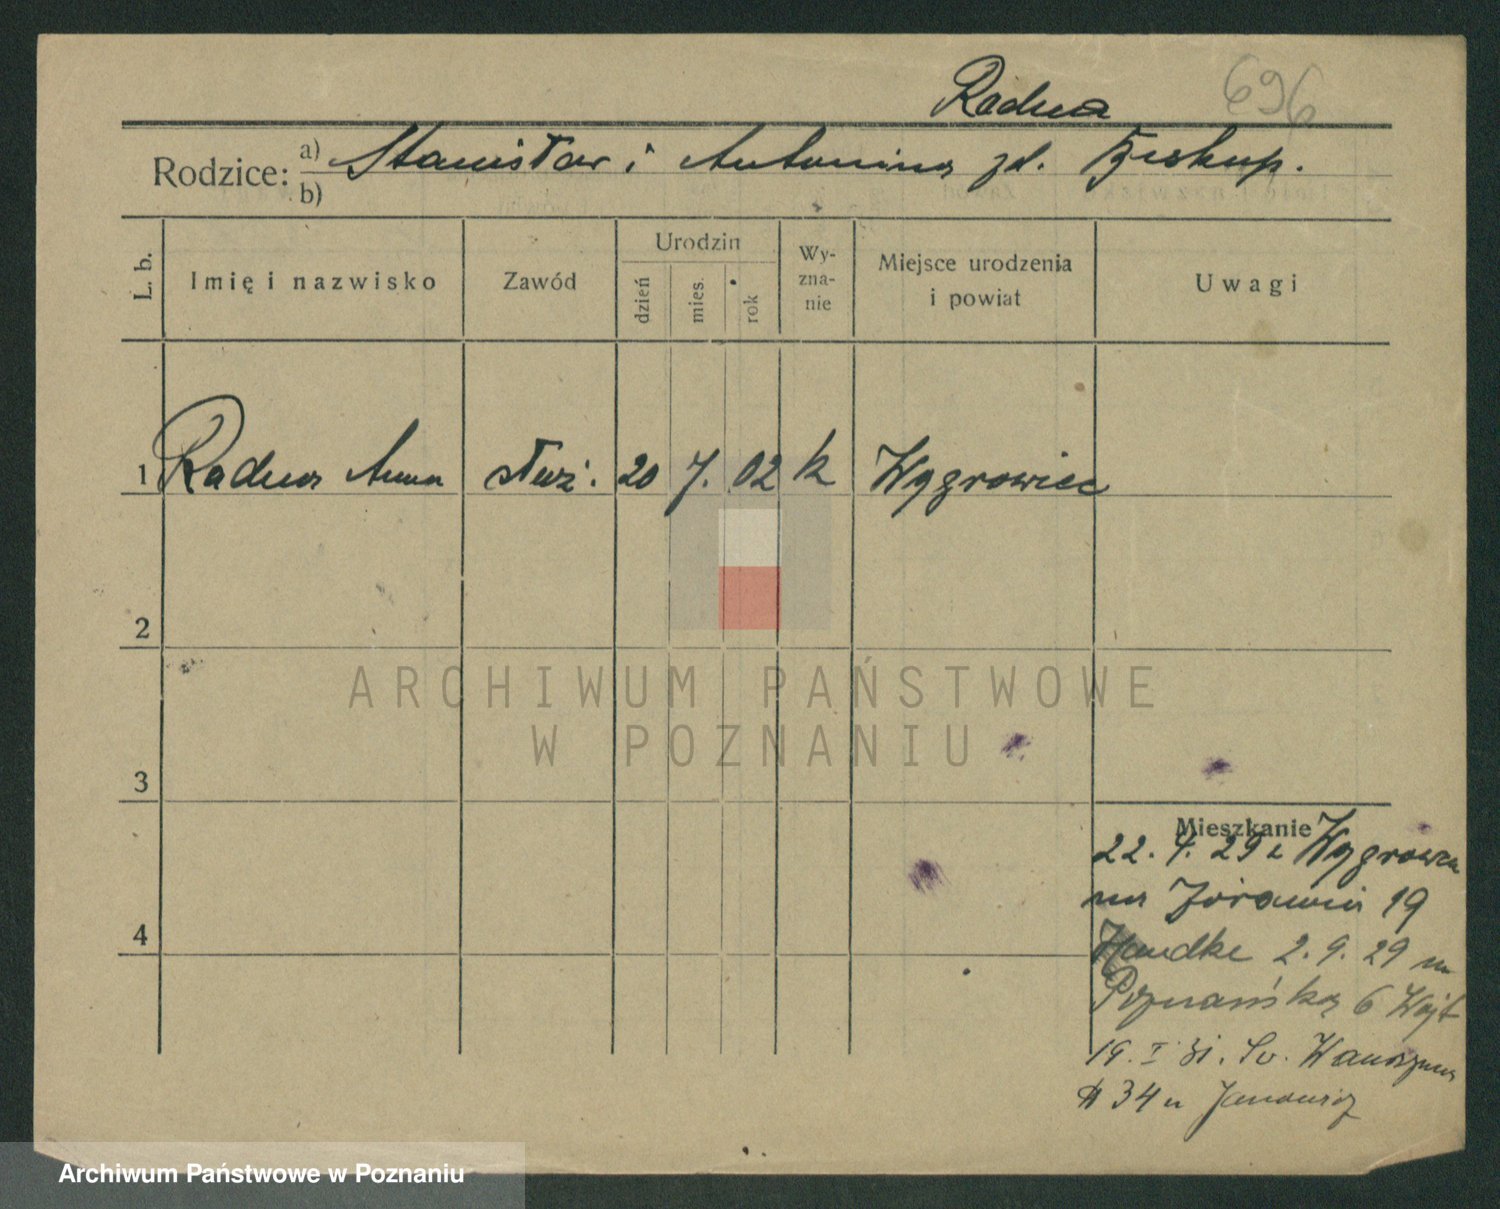 Radna 696
Rodzice: a) Stanisław i Antonina zd. Biskup.
b)
L. b. Imię i nazwisko Zawód Urodzin dzień mies. rok Wy-zna-nie Miejsce urodzenia i powiat Uwagi
1 Radna Anna służ. 20 7. 02 k Wągrowiec
2
ARCHIWUM PAŃSTWOWE
W POZNANIU
3
Mieszkanie
22. 4. 29 z Wągrowca
na 19
Handke 2. 9. 29 na
Poznańską 6 Wojt
19. I 31. Św.
34 u Janowicz
4
Archiwum Państwowe w Poznaniu